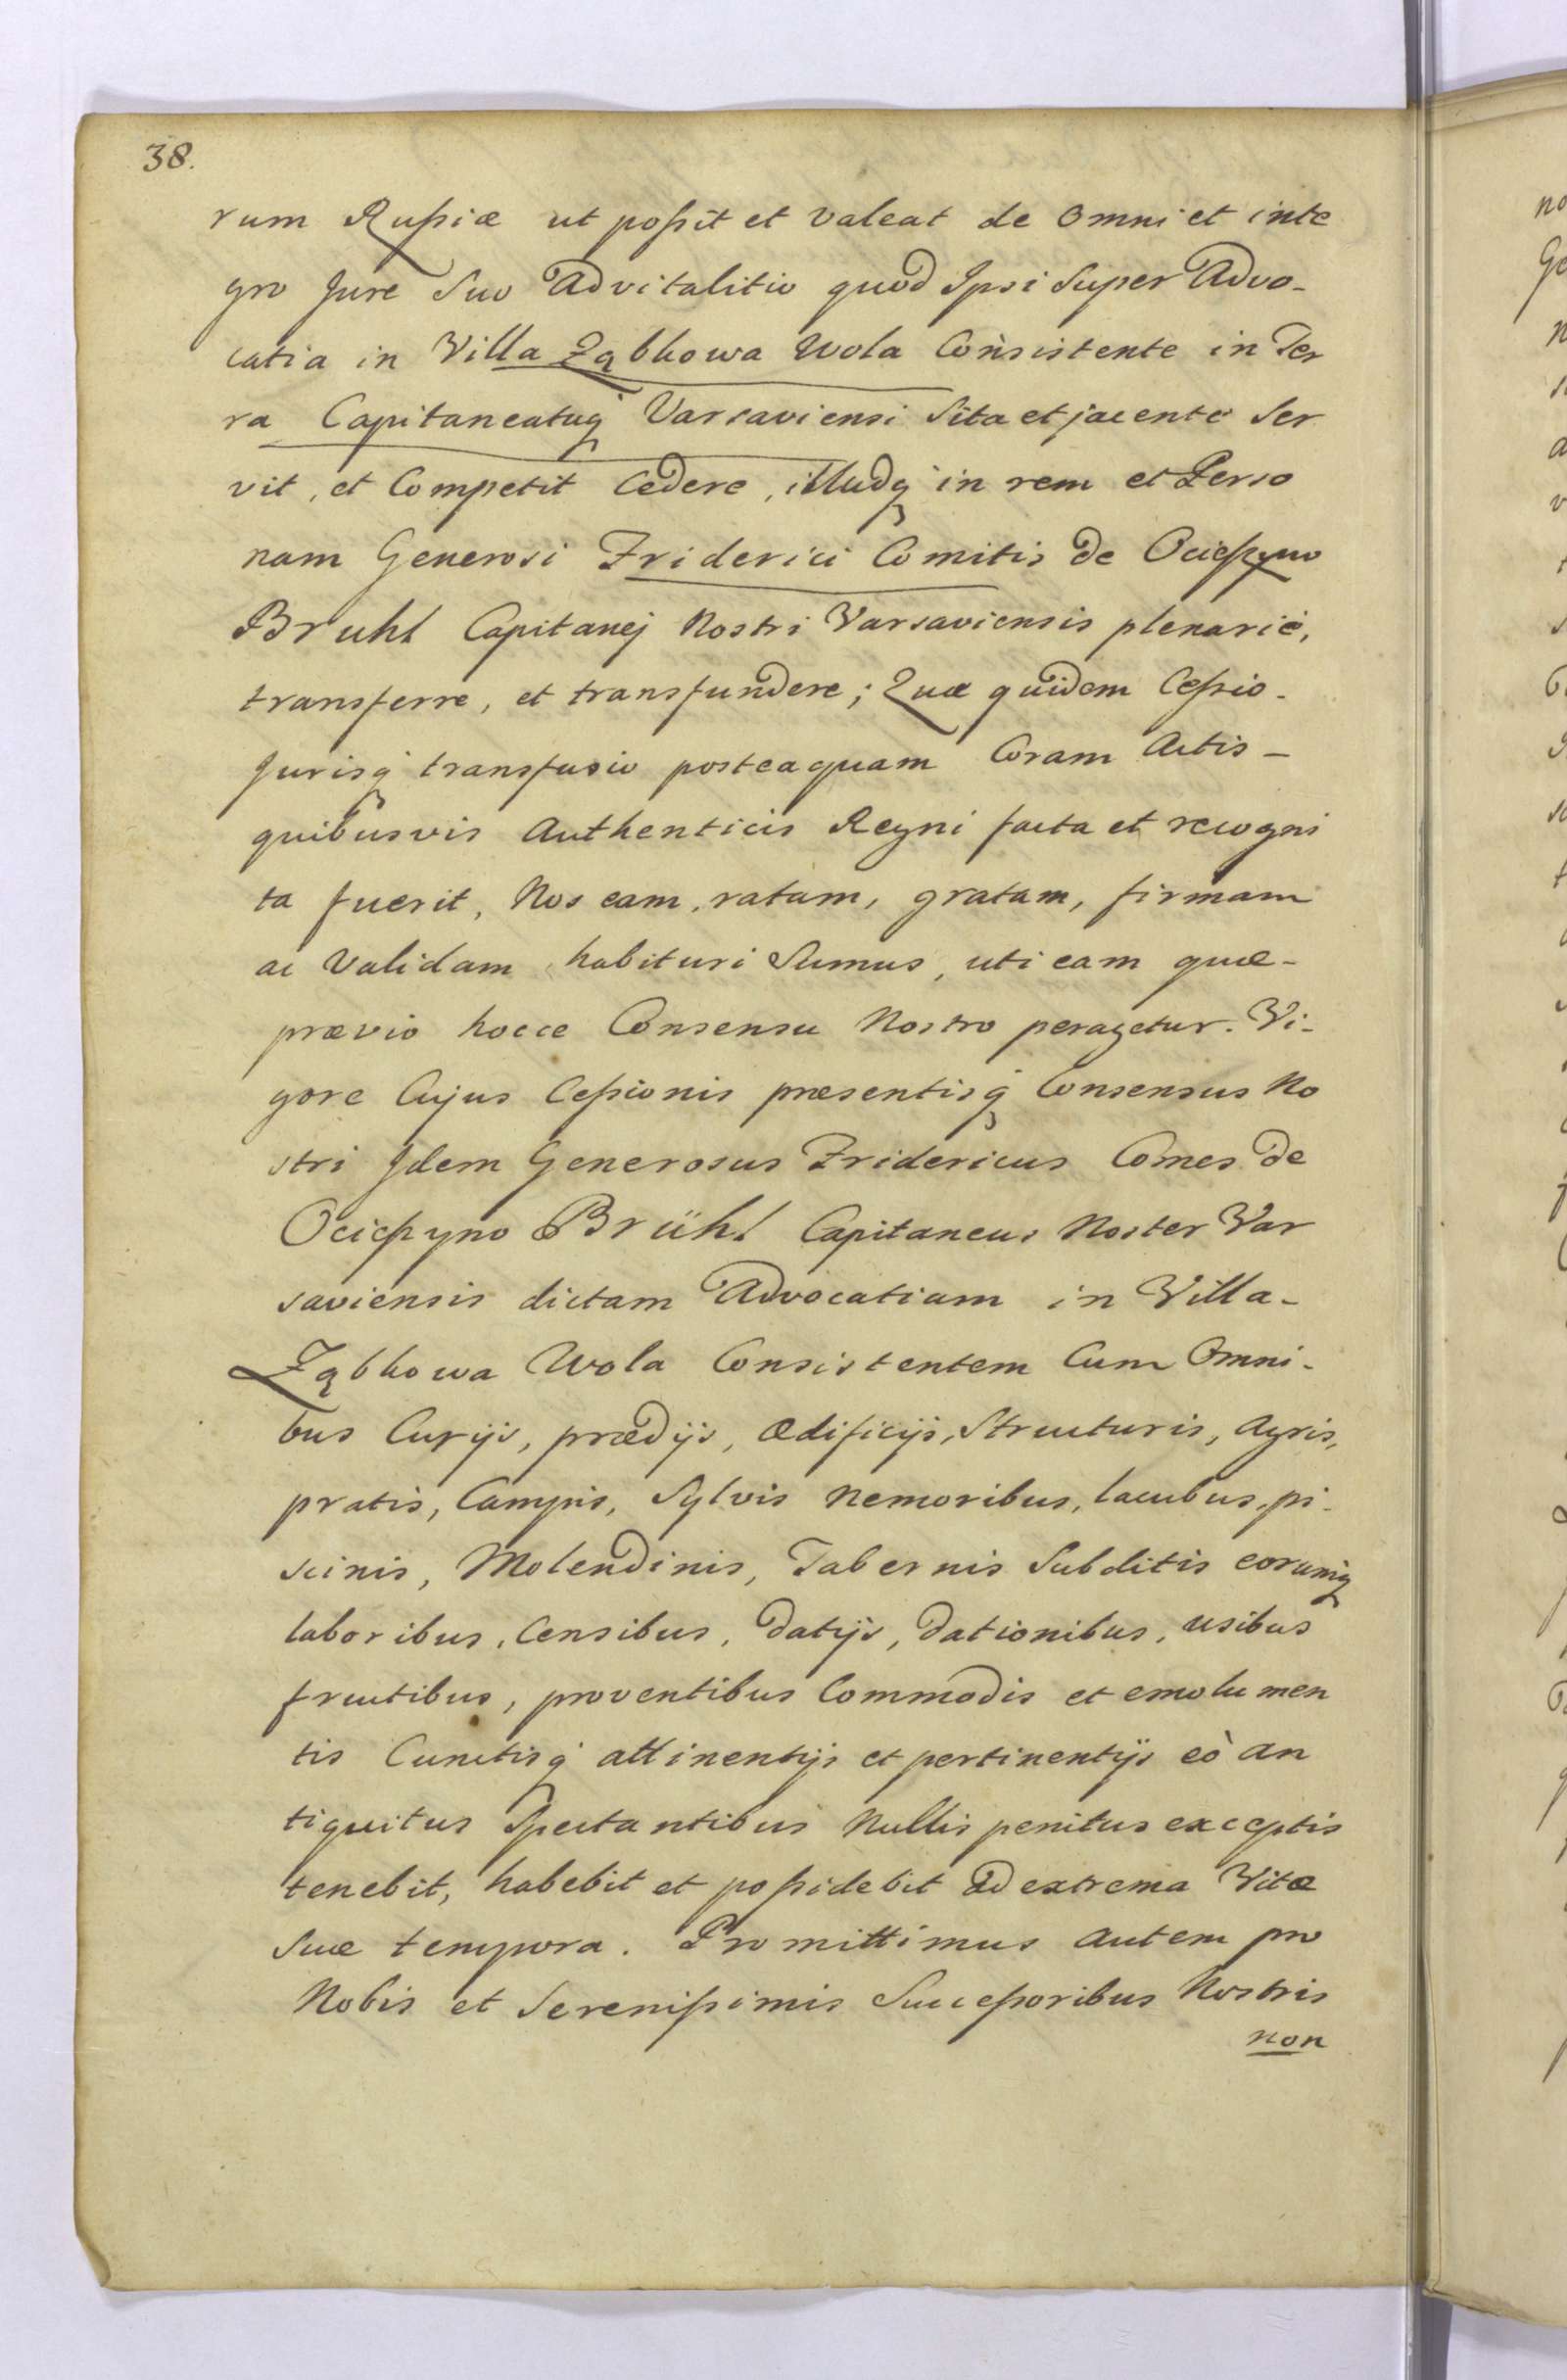 38.
rum Rußiæ ut poßit et valeat de omni et inte
gro Jure Suo Advitalitio quod Ipsi Super Advo-
catia in Villa Ząbkowa Wola Consistente in Ter
ra Capitaneatuq Varsaviensi Sita et jacente Ser
vit, et Competit Cedere, illudq in rem et Perso
nam Generosi Friderici Comitis de Ocießyno
Bruhl Capitanej Nostri Varsaviensis plenarie,
transferre, et transfundere; Quæ quidem Ceßio-
Jurisq transfusio posteaquam Coram Actis-
quibusvis Authenticis Regni facta et recogni
ta fuerit, Nos eam, ratam, gratam, firmam
ac Validam habituri Sumus, uti eam quæ-
prævio hocce Consensu Nostro peragetur. Vi-
gore Cujus Ceßionis præsentisq Consensus No
stri Idem Generosus Fridericus Comes de
Ocießyno Brühl Capitaneus Noster Var
saviensis dictam Advocatiam in Villa-
Ząbkowa Wola Consistentem Cum Omni-
bus Curijs, prædijs, ædificijs, Structuris, Agris,
pratis, Campis, Sylvis Nemoribus, lacubus, pi-
scinis, Molendinis, Tabernis Subditis eorumq
laboribus, Censibus, datijs, dationibus, usibus
fructibus, proventibus Commodis et emolumen
tis Cunctisq attinentijs et pertinentijs eò an
tiquitus Spectantibus Nullis penitus exceptis
tenebit, habebit et poßidebit ad extrema Vitæ
Suæ tempora. Promittimus autem pro
Nobis et Serenißimis Succeßoribus Nostris
non